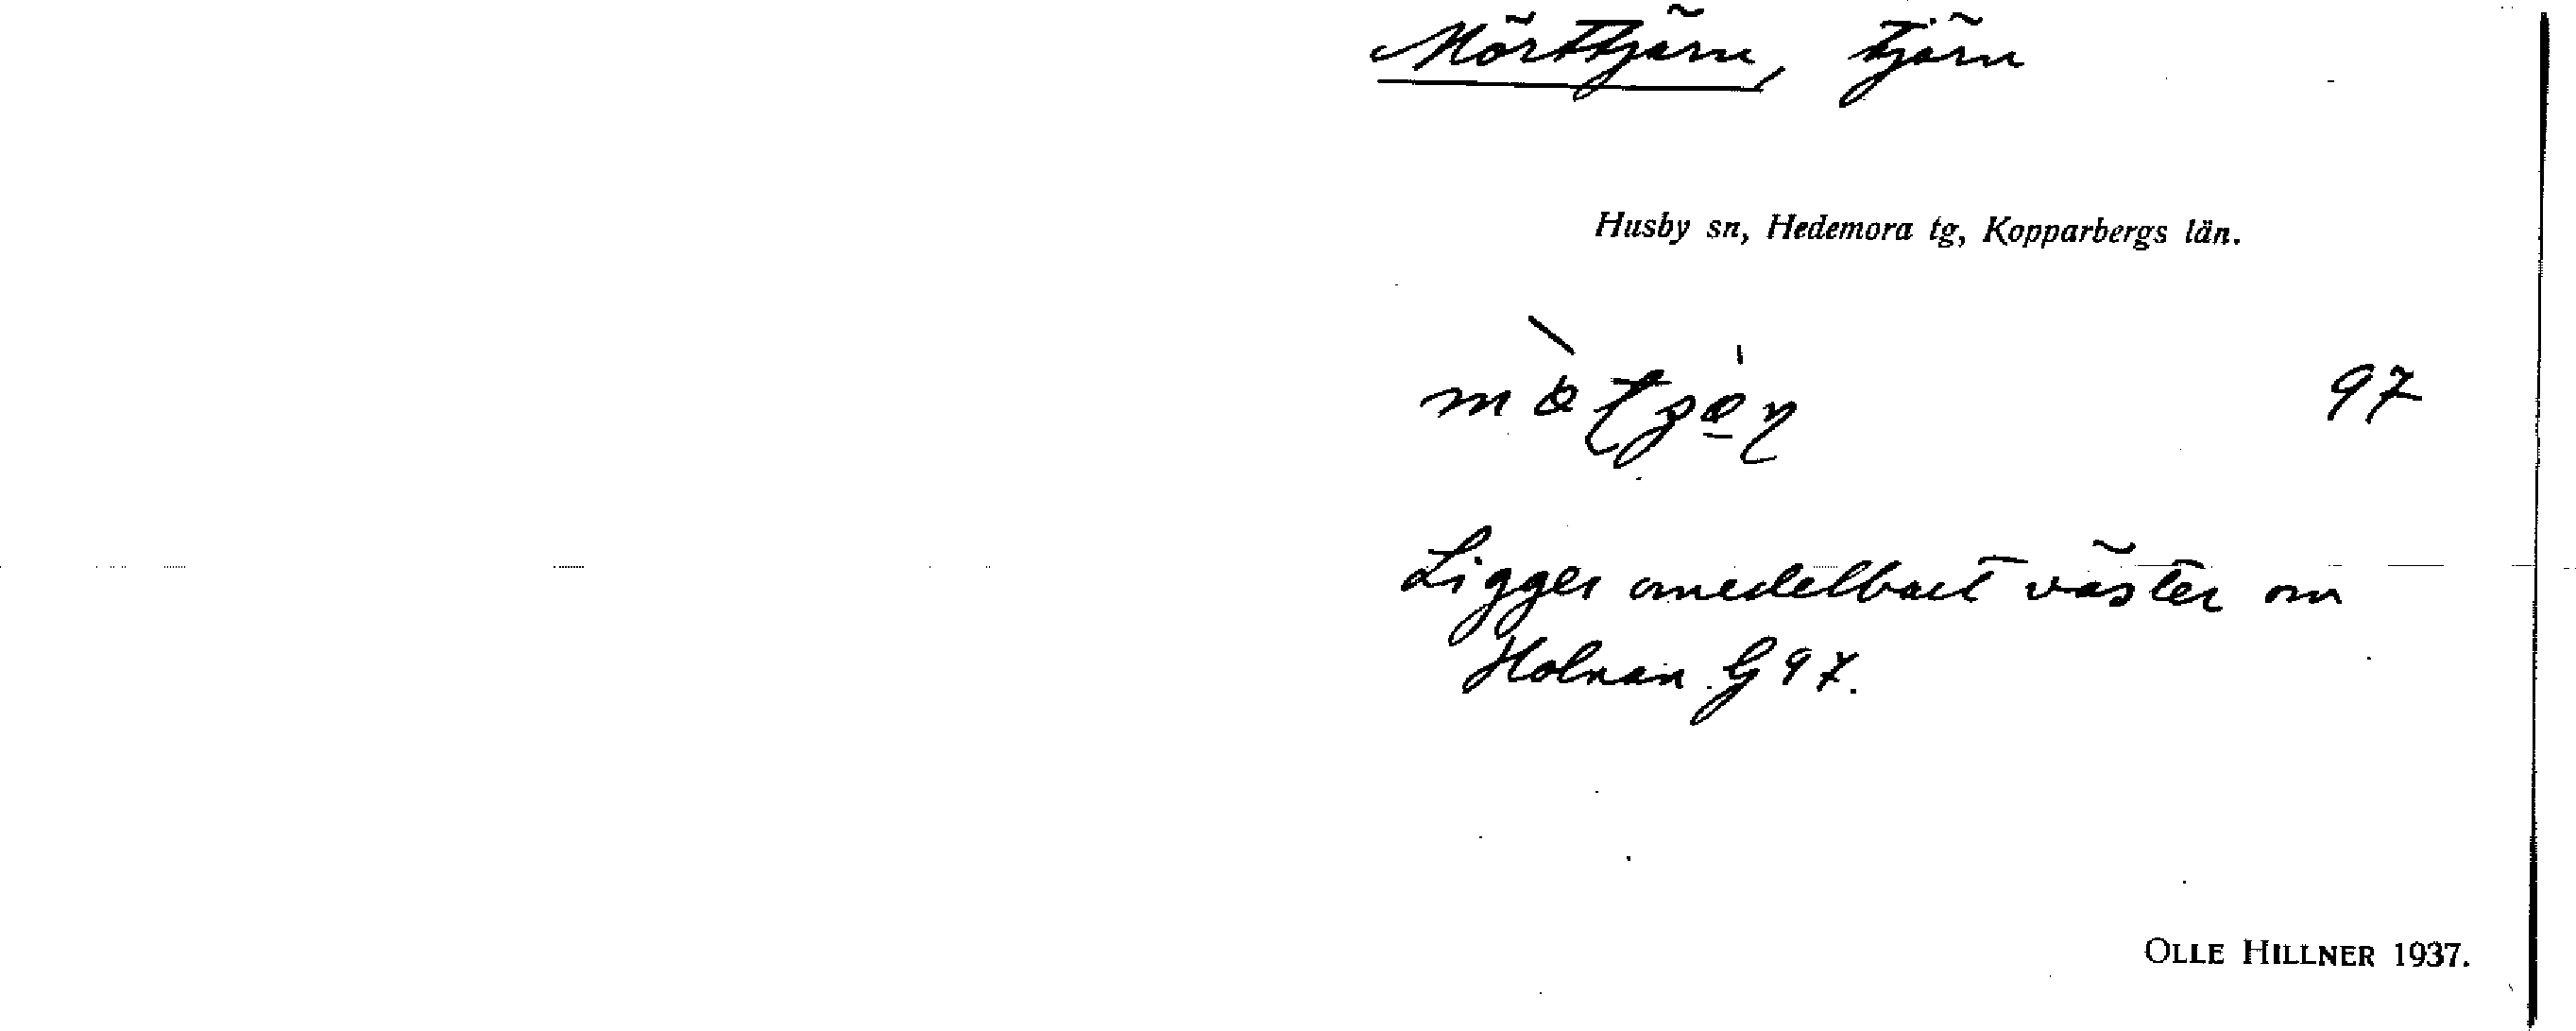 Mörttjärn, tjärn
Husby sn, Hedemora tg, Kopparbergs län.
97
Ligger omedelbart väster om
Holnan G 97.
OLLE HILLNER 1937.